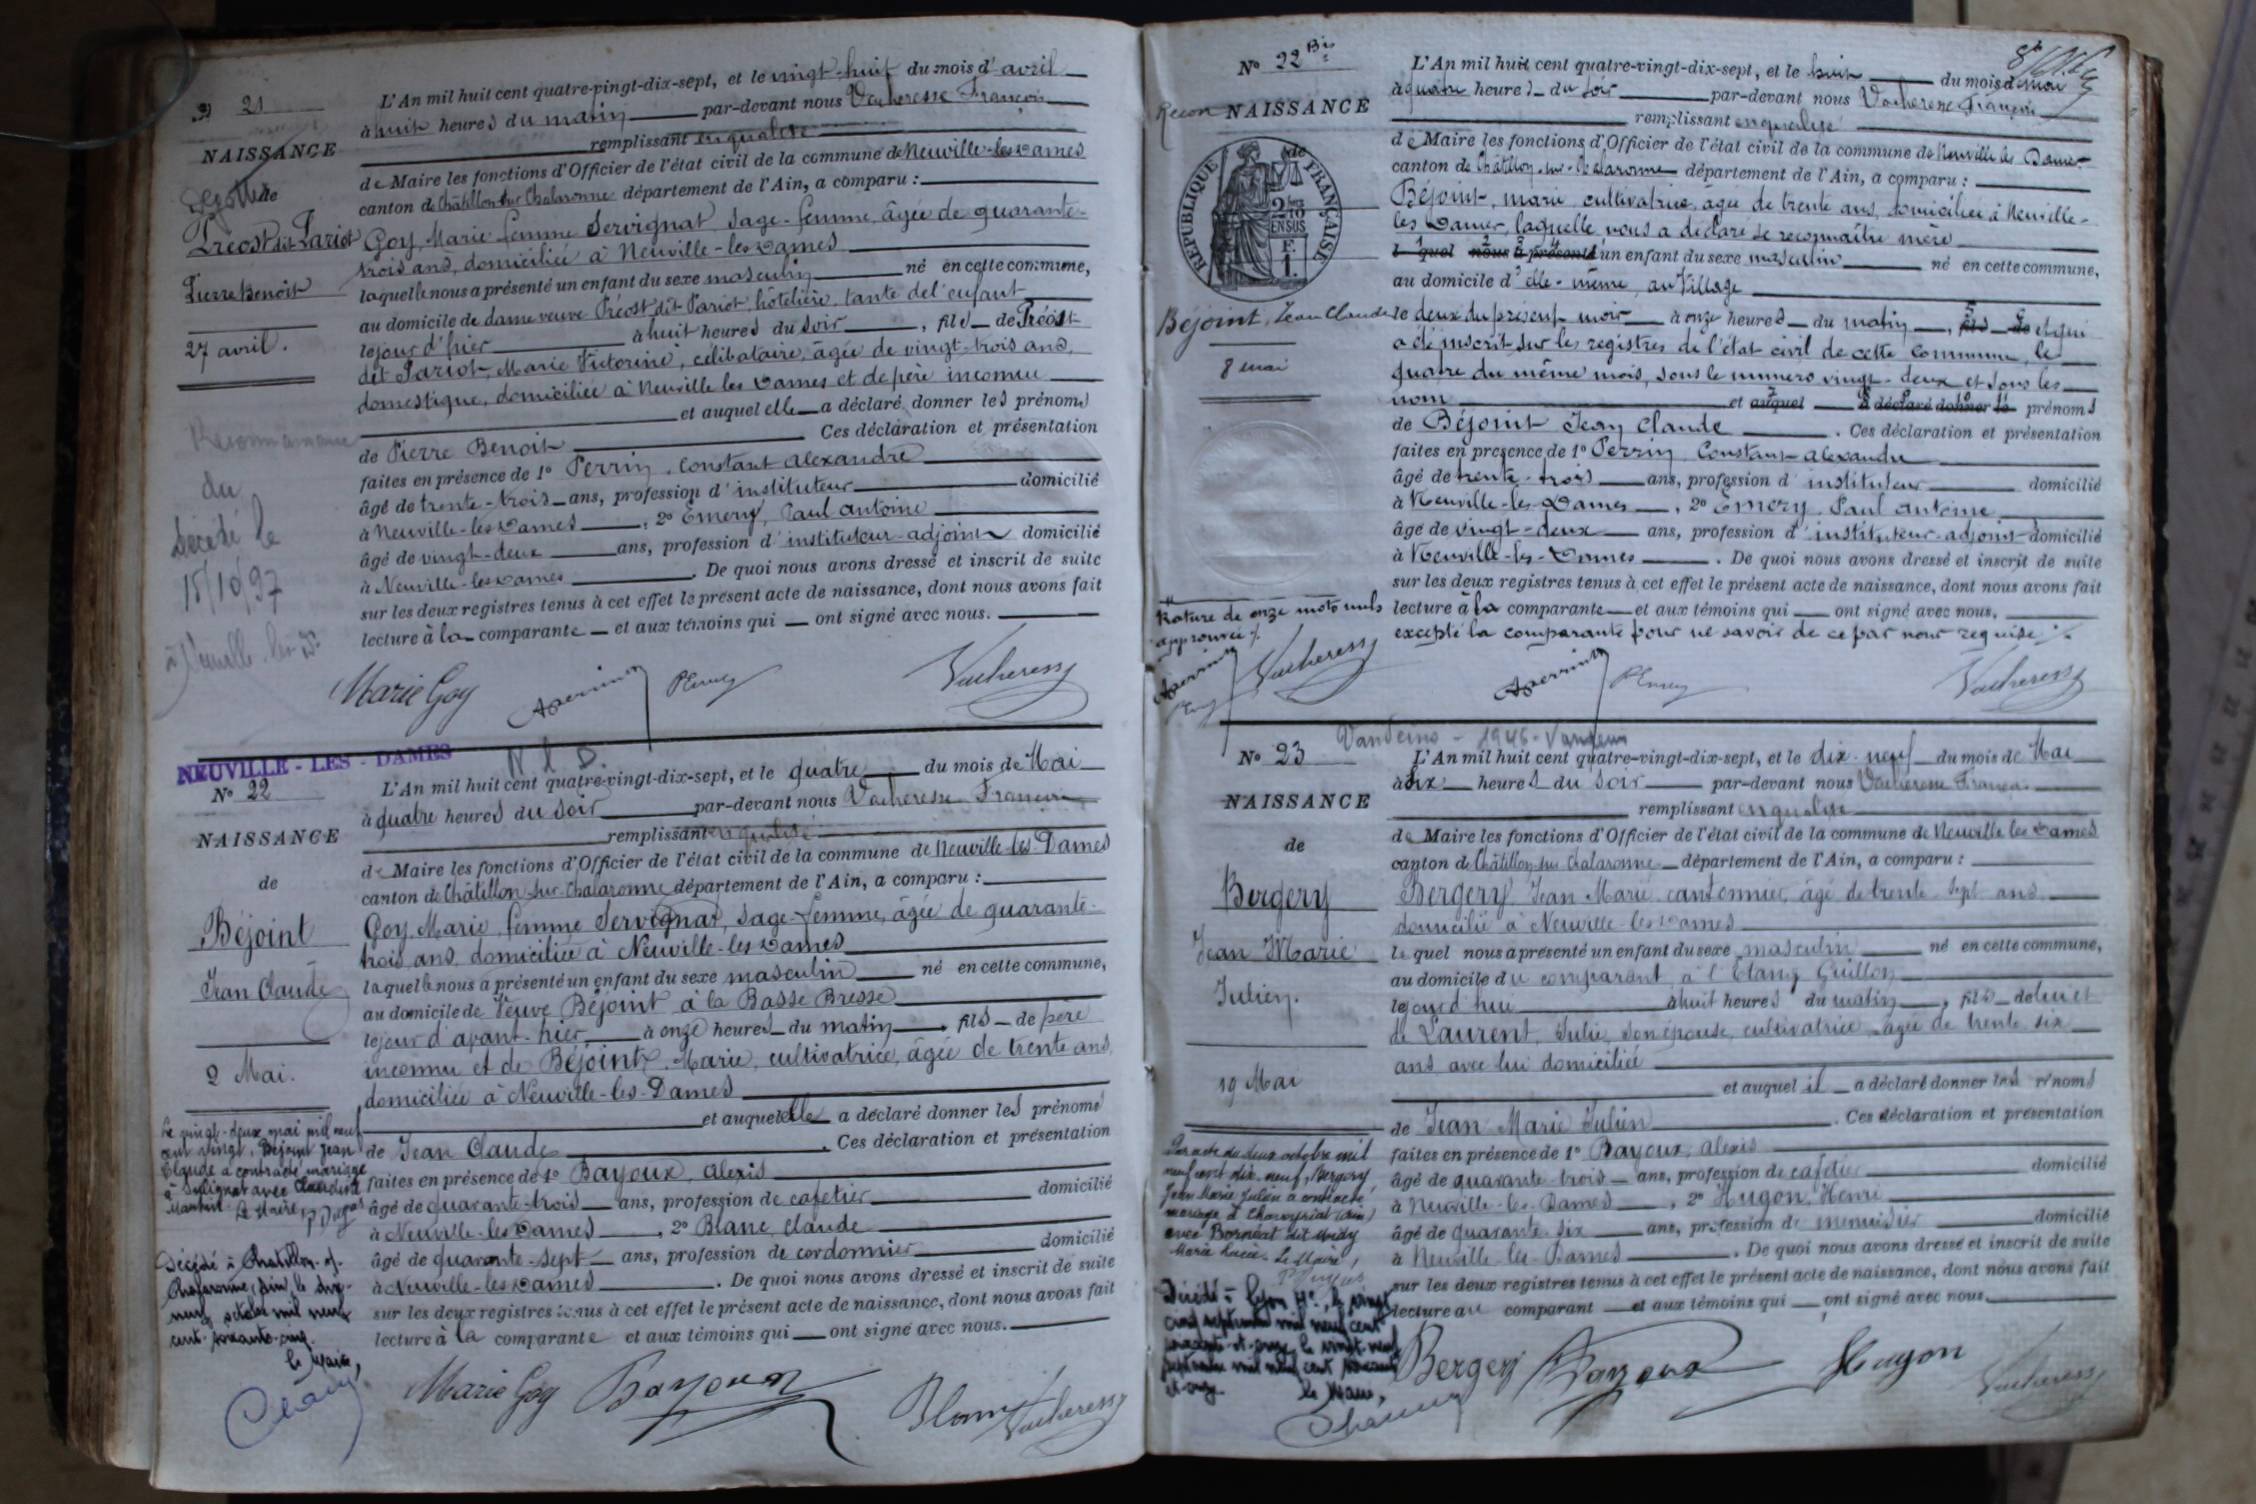 21
NAISSANCE
de
Préost dit Pariot
Pierre Benoît
27 avril.
Reconnaissance
du
Décédé le
15/10/97
L'An mil huit cent quatre-vingt-dix-sept, et le vingt-huit du mois d'avril
à huit heures du matin par-devant nous Vacheresse François
remplissant en qualité
de Maire les fonctions d'Officier de l'état civil de la commune de Neuville-les-Dames
canton de Châtillon sur Chalaronne département de l'Ain, a comparu :
Goy, Marie femme Servignat, sage-femme, âgée de quarante-
trois ans, domiciliée à Neuville-les-Dames
laquelle nous a présenté un enfant du sexe masculin né en cette commune,
au domicile de dame veuve Préost dit Pariot, hôtelière, tante de l'enfant
le jour d'hier à huit heures du soir, fils de Préost
dit Pariot, Marie Victorine, célibataire, âgée de vingt-trois ans,
domestique, domiciliée à Neuville les Dames et de père inconnu
et auquel elle a déclaré donner les prénoms
de Pierre Benoît Ces déclaration et présentation
faites en présence de 1º Perrin, Constant Alexandre
âgé de trente-trois ans, profession d'instituteur domicilié
à Neuville-les-Dames, 2º Emery, Paul Antoine
âgé de vingt-deux ans, profession d'instituteur-adjoint domicilié
à Neuville-les-Dames. De quoi nous avons dressé et inscrit de suite
sur les deux registres tenus à cet effet le présent acte de naissance, dont nous avons fait
lecture à la comparante et aux témoins qui ont signé avec nous.
Marie Goy APerrin PEmery Vacheresse
NEUVILLE - LES - DAMES
N l D.
Nº 22
NAISSANCE
de
Béjoint
Jean Claude
2 Mai.
Le vingt-deux mai mil neuf
cent vingt, Béjoint Jean
Claude a contracté mariage
à Sulignat avec Claudine
Le Maire,
Décédé à Chatillon-s-
Chalaronne, Ain, le dix-
neuf octobre mil neuf
cent soixante-cinq.
Le Maire,
L'An mil huit cent quatre-vingt-dix-sept, et le quatre du mois de Mai
à quatre heures du soir par-devant nous Vacheresse François
remplissant en qualité
de Maire les fonctions d'Officier de l'état civil de la commune de Neuville-les-Dames
canton de Châtillon-sur-Chalaronne département de l'Ain, a comparu :
Goy, Marie, femme Servignat, sage-femme, âgée de quarante-
trois ans, domiciliée à Neuville-les-Dames
laquelle nous a présenté un enfant du sexe masculin né en cette commune,
au domicile de Veuve Béjoint à la Basse Bresse
le jour d'avant-hier à onze heures du matin, fils de père
inconnu et de Béjoint, Marie, cultivatrice, âgée de trente ans,
domiciliée à Neuville-les-Dames
et auquel elle a déclaré donner les prénoms
de Jean Claude. Ces déclaration et présentation
faites en présence de 1º Bayoux, Alexis
âgé de quarante-trois ans, profession de cafetier domicilié
à Neuville-les-Dames, 2º Blanc, Claude
âgé de quarante-sept ans, profession de cordonnier domicilié
à Neuville-les-Dames. De quoi nous avons dressé et inscrit de suite
sur les deux registres tenus à cet effet le présent acte de naissance, dont nous avons fait
lecture à la comparante et aux témoins qui ont signé avec nous.
Marie Goy Bayoux Blanc Vacheresse
Nº 22 Bis
Recon NAISSANCE
de
RÉPUBLIQUE FRANÇAISE
2/10 EN SUS
F. 1.
Béjoint, Jean Claude
8 mai
Rature de onze mots nuls
approuvée
APerrin Vacheresse
L'An mil huit cent quatre-vingt-dix-sept, et le huit du mois de mai
à quatre heures du soir par-devant nous Vacheresse François
remplissant en qualité
de Maire les fonctions d'Officier de l'état civil de la commune de Neuville les Dames
canton de Châtillon-sur-Chalaronne département de l'Ain, a comparu :
Béjoint, Marie, cultivatrice, âgée de trente ans, domiciliée à Neuville-
les-Dames, laquelle nous a déclaré se reconnaître mère
lequel nous a présenté d'un enfant du sexe masculin né en cette commune,
au domicile d'elle-même, au Village
le deux du présent mois à onze heures du matin, fils de et qui
a été inscrit sur les registres de l'état civil de cette commune, le
quatre du même mois, sous le numéro vingt-deux et sous les
nom et auquel a déclaré donner le prénoms
de Béjoint Jean Claude. Ces déclaration et présentation
faites en présence de 1º Perrin, Constant-Alexandre
âgé de trente-trois ans, profession d'instituteur domicilié
à Neuville-les-Dames, 2º Emery, Paul Antoine
âgé de vingt-deux ans, profession d'instituteur-adjoint domicilié
à Neuville-les-Dames. De quoi nous avons dressé et inscrit de suite
sur les deux registres tenus à cet effet le présent acte de naissance, dont nous avons fait
lecture à la comparante et aux témoins qui ont signé avec nous,
excepté la comparante pour ne savoir de ce par nous requise
APerrin PEmery Vacheresse
Vandeins - 1946 - Vandeins
Nº 23
NAISSANCE
de
Bergery
Jean Marie
Julien.
19 Mai
Par acte du deux octobre mil
neuf cent dix-neuf, Bergery
Jean Marie Julien a contracté
mariage à Chaveyriat (Ain)
avec
Marie Lucie. Le Maire,
Décédé à Lyon
Le Maire,
L'An mil huit cent quatre-vingt-dix-sept, et le dix-neuf du mois de Mai
à six heures du soir par-devant nous Vacheresse François
remplissant en qualité
de Maire les fonctions d'Officier de l'état civil de la commune de Neuville les Dames
canton de Châtillon sur Chalaronne département de l'Ain, a comparu :
Bergery, Jean Marie, cantonnier, âgé de trente-sept ans,
domicilié à Neuville-les-Dames
lequel nous a présenté un enfant du sexe masculin né en cette commune,
au domicile du comparant, à l'Etang Guillon
le jour d'hui à huit heures du matin, fils de lui et
de Laurent, Julie, son épouse, cultivatrice, âgée de trente-six
ans avec lui domiciliée
et auquel il a déclaré donner les prénoms
de Jean Marie Julien. Ces déclaration et présentation
faites en présence de 1º Bayoux, Alexis
âgé de quarante-trois ans, profession de cafetier domicilié
à Neuville-les-Dames, 2º Hugon, Henri
âgé de quarante-six ans, profession de menuisier domicilié
à Neuville-les-Dames. De quoi nous avons dressé et inscrit de suite
sur les deux registres tenus à cet effet le présent acte de naissance, dont nous avons fait
lecture au comparant et aux témoins qui ont signé avec nous
Bergery Bayoux Hugon Vacheresse